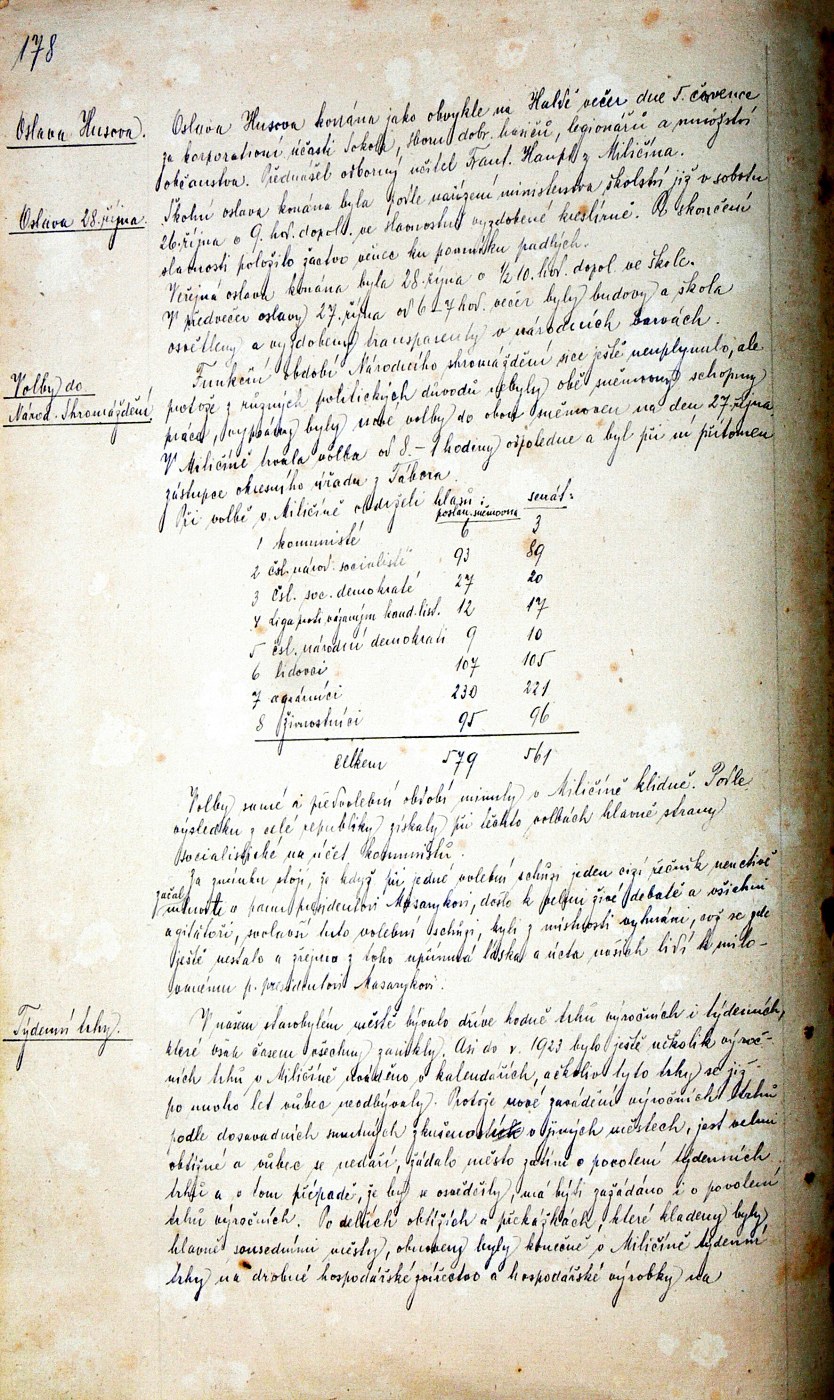 178
Oslava Husova.
Oslava Husova konána jako obvykle na Haldě večer dne 5. července
za korporativní účasti Sokola, sboru dobr. hasičů, legionářů a množství
občanstva. Přednášel odborný učitel Frant. Haupt z Miličína.
Oslava 28. října.
Školní oslava konána byla podle nařízení ministerstva školství již v sobotu
26. října o 9. hod. dopol. ve slavnostně vyzdobené kreslírně. Po skončení
slavnosti položilo žactvo věnec ku pomníku padlých.
Veřejná oslava konána byla 28. října o ½ 10. hod. dopol. ve škole.
V předvečer oslavy 27. října od 6–7 hod. večer byly budovy a škola
osvětleny a vyzdobeny transparenty v národních barvách.
Volby do
Národ. Shromáždění
Funkční období Národního shromáždění sice ještě neuplynulo, ale
protože z různých politických důvodů nebyly obě sněmovny schopny
práce, vypsány byly nové volby do obou sněmoven na den 27. října.
V Miličíně trvala volba od 8.–1 hodiny odpoledne a byl při ní přítomen
zástupce okresního úřadu z Tábora.
Při volbě v Miličíně obdrželi hlasů: senát:
poslan. sněmovna
1 komunisté 6 3
2 čsl. národ. socialisté 93 89
3 čsl. soc. demokraté 27 20
4 Liga proti vázaným kand. list. 12 17
5 čsl. národní demokrati 9 10
6 lidovci 107 105
7 agrárníci 230 221
8 živnostníci 95 96
celkem 579 561
Volby samé i předvolební období minuly v Miličíně klidně. Podle
výsledku z celé republiky získaly při těchto volbách hlavně strany
socialistické na účet komunistů.
Za zmínku stojí, že když při jedné volební schůzi jeden cizí řečník neuctivě
začal
mluviti o panu presidentovi Masarykovi, došlo k velmi živé debatě a všichni
agitátoři, svolavší tuto volební schůzi, byli z místnosti vyhnáni, což se zde
ještě nestalo a zřejmo z toho upřímná láska a úcta našich lidí k milo-
vanému p. presidentovi Masarykovi.
Týdenní trhy.
V našem starobylém městě bývalo dříve hodně trhů výročních i týdenních,
které však časem všechny zanikly. Asi do r. 1923 bylo ještě několik výroč-
ních trhů v Miličíně uváděno v kalendářích, ačkoliv tyto trhy se již
po mnoho let vůbec neodbývaly. Protože nové zavádění výročních trhů
podle dosavadních smutných zkušeností v jiných městech, jest velmi
obtížné a vůbec se nedaří, žádalo město zatím o povolení týdenních
trhů a v tom případě, že by se osvědčily, má býti zažádáno i o povolení
trhů výročních. Po delších obtížích a překážkách, které kladeny byly
hlavně sousedními městy, obnoveny byly konečně v Miličíně týdenní
trhy na drobné hospodářské zvířectvo a hospodářské výrobky na